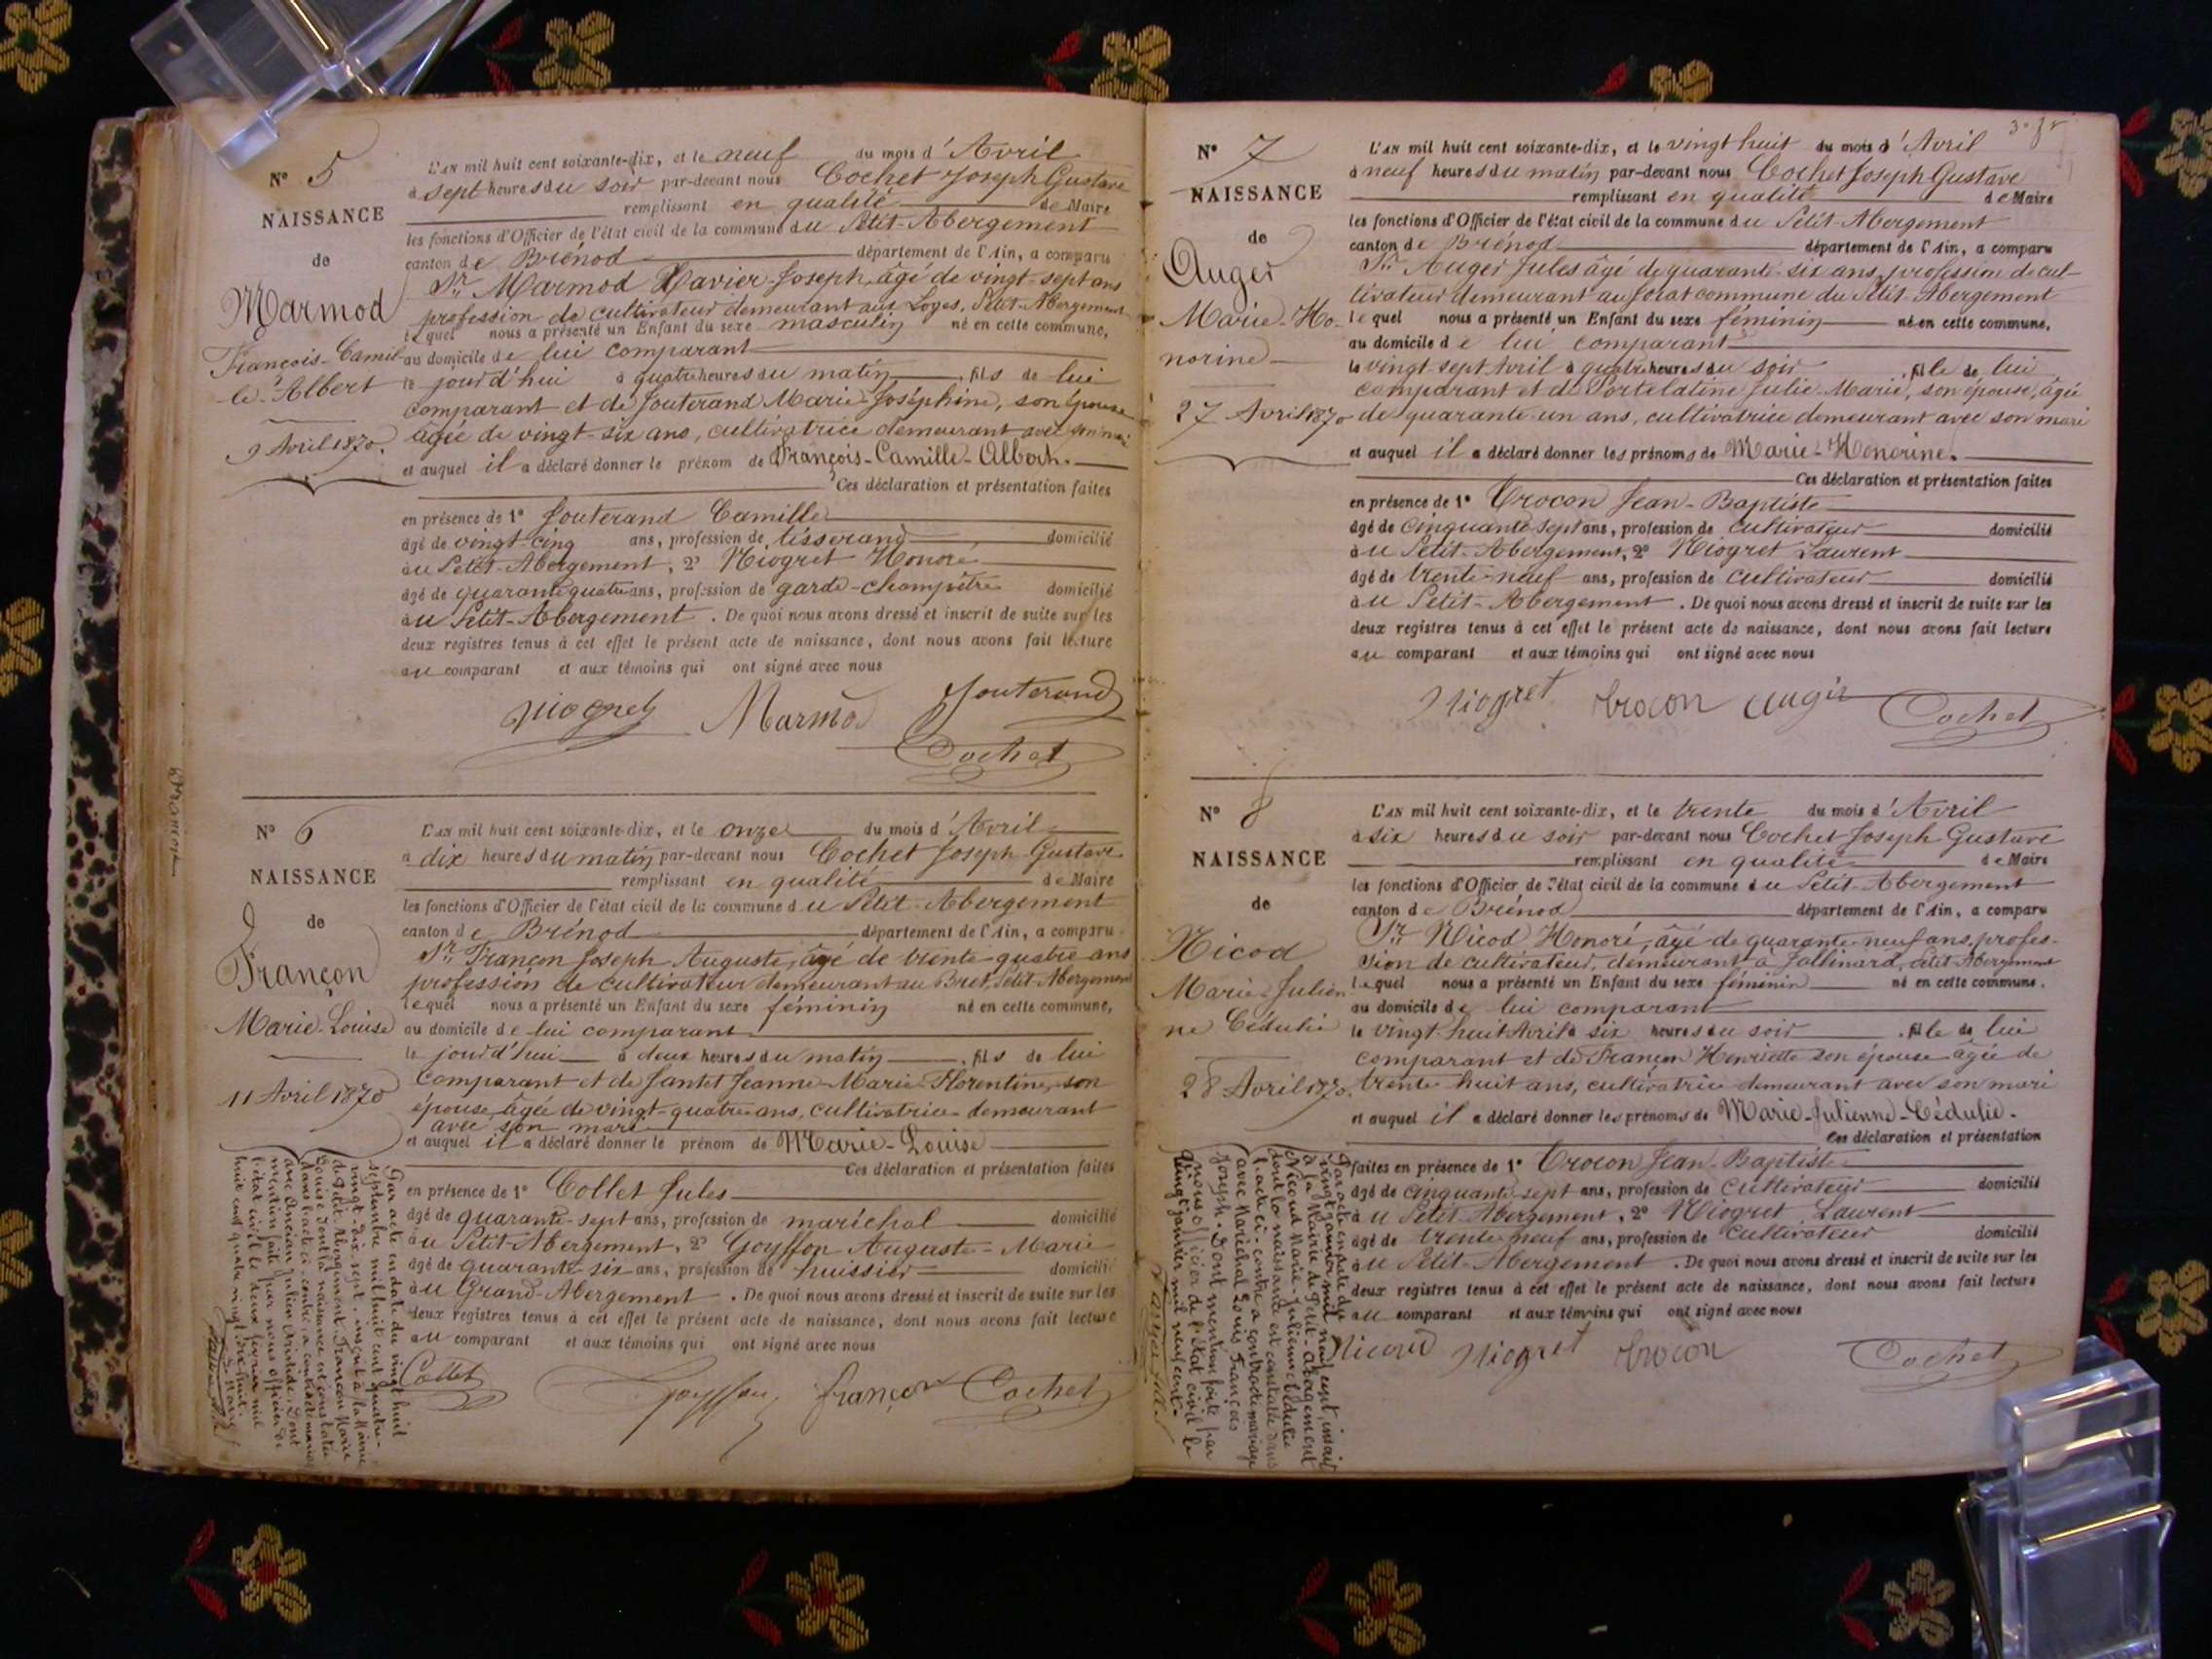 N° 5
NAISSANCE
de
Marmod
François-Camil-
le-Albert
9 Avril 1870.
L'AN mil huit cent soixante-dix, et le neuf du mois d'Avril
à sept heures du soir par-devant nous Cochet Joseph Gustave
remplissant en qualité de Maire
les fonctions d'Officier de l'état civil de la commune du Petit-Abergement
canton de Brénod département de l'Ain, a comparu
Sr Marmod Xavier-Joseph, âgé de vingt-sept ans
profession de cultivateur demeurant aux Loges, Petit-Abergement
lequel nous a présenté un Enfant du sexe masculin né en cette commune,
au domicile de lui comparant
le jourd'hui à quatre heures du matin, fils de lui
comparant et de Jouterand Marie-Joséphine, son épouse
âgée de vingt-six ans, cultivatrice demeurant avec son mari
et auquel il a déclaré donner le prénom de François-Camille-Albert.
Ces déclaration et présentation faites
en présence de 1° Jouterand Camille
âgé de vingt-cinq ans, profession de tisserand domicilié
au Petit-Abergement, 2° Niogret Honoré
âgé de quarante quatre ans, profession de garde-champêtre domicilié
au Petit-Abergement. De quoi nous avons dressé et inscrit de suite sur les
deux registres tenus à cet effet le présent acte de naissance, dont nous avons fait lecture
au comparant et aux témoins qui ont signé avec nous
Niogret Marmod Jouterand
Cochet
N° 6
NAISSANCE
de
Françon
Marie-Louise
11 Avril 1870
L'AN mil huit cent soixante-dix, et le onze du mois d'Avril
à dix heures du matin par-devant nous Cochet Joseph-Gustave
remplissant en qualité de Maire
les fonctions d'Officier de l'état civil de la commune du Petit-Abergement
canton de Brénod département de l'Ain, a comparu
Sr Françon Joseph Auguste, âgé de trente-quatre ans
profession de cultivateur demeurant au Bret, Petit-Abergement
lequel nous a présenté un Enfant du sexe féminin né en cette commune,
au domicile de lui comparant
le jourd'hui à deux heures du matin, fils de lui
comparant et de Santet Jeanne-Marie-Florentine, son
épouse, âgée de vingt-quatre ans, cultivatrice demeurant
avec son mari
et auquel il a déclaré donner le prénom de Marie-Louise
Ces déclaration et présentation faites
en présence de 1° Collet Jules
âgé de quarante-sept ans, profession de maréchal domicilié
au Petit Abergement, 2° Goyffon Auguste-Marie
âgé de quarante-six ans, profession de huissier domicilié
au Grand-Abergement. De quoi nous avons dressé et inscrit de suite sur les
deux registres tenus à cet effet le présent acte de naissance, dont nous avons fait lecture
au comparant et aux témoins qui ont signé avec nous
Collet Goyffon françon Cochet
Par acte en date du vingt huit
septembre mil huit cent quatre-
vingt-dix sept, inscrit à la Mairie
du Petit Abergement, Françon Marie
Louise dont la naissance est constatée
dans l'acte ci-contre a contracté mariage
avec Ancian Julien Aristide. Dont
mention faite par nous officier de
l'état civil le deux février mil
huit cent quatre vingt dix huit.
N° 7
NAISSANCE
de
Auger
Marie-Ho-
norine
27 Avril 1870
L'AN mil huit cent soixante-dix, et le vingt huit du mois d'Avril
à neuf heures du matin par-devant nous Cochet Joseph Gustave
remplissant en qualité de Maire
les fonctions d'Officier de l'état civil de la commune du Petit-Abergement
canton de Brénod département de l'Ain, a comparu
Sr Auger Jules âgé de quarante-six ans, profession de cul-
tivateur demeurant au Jorat commune du Petit Abergement
lequel nous a présenté un Enfant du sexe féminin né en cette commune,
au domicile de lui comparant
le vingt-sept Avril à quatre heures du soir, fille de lui
comparant et de Portelatine Julie-Marie, son épouse, âgée
de quarante-un ans, cultivatrice demeurant avec son mari
et auquel il a déclaré donner les prénoms de Marie-Honorine.
Ces déclaration et présentation faites
en présence de 1° Crocon Jean-Baptiste
âgé de cinquante sept ans, profession de cultivateur domicilié
au Petit-Abergement, 2° Niogret Laurent
âgé de trente-neuf ans, profession de cultivateur domicilié
au Petit-Abergement. De quoi nous avons dressé et inscrit de suite sur les
deux registres tenus à cet effet le présent acte de naissance, dont nous avons fait lecture
au comparant et aux témoins qui ont signé avec nous
Niogret Crocon Auger Cochet
N° 8
NAISSANCE
de
Nicod
Marie-Julien-
ne Cédulie
28 Avril 1870.
L'AN mil huit cent soixante-dix, et le trente du mois d'Avril
à six heures du soir par-devant nous Cochet Joseph-Gustave
remplissant en qualité de Maire
les fonctions d'Officier de l'état civil de la commune du Petit-Abergement
canton de Brénod département de l'Ain, a comparu
Sr Nicod Honoré, âgé de quarante-neuf ans, profes-
sion de cultivateur, demeurant à Jallinard, Petit-Abergement
lequel nous a présenté un Enfant du sexe féminin né en cette commune.
au domicile de lui comparant
le vingt-huit Avril à six heures du soir, fille de lui
comparant et de Françon Henriette son épouse âgée de
trente-huit ans, cultivatrice demeurant avec son mari
et auquel il a déclaré donner les prénoms de Marie-Julienne-Cédulie.
Ces déclaration et présentation
faites en présence de 1° Crocon Jean-Baptiste
âgé de cinquante-sept ans, profession de cultivateur domicilié
au Petit-Abergement, 2° Niogret Laurent
âgé de trente-neuf ans, profession de cultivateur domicilié
au Petit-Abergement. De quoi nous avons dressé et inscrit de suite sur les
deux registres tenus à cet effet le présent acte de naissance, dont nous avons fait lecture
au comparant et aux témoins qui ont signé avec nous
Nicoud Niogret Crocon Cochet
Par acte en date du
vingt janvier mil neuf cent, inscrit
à la Mairie du Petit-Abergement
Nicoud Marie-Julienne Cédulie
dont la naissance est constatée dans
l'acte ci-contre a contracté mariage
avec Maréchal Louis François
Joseph. Dont mention faite par
nous officier de l'état civil le
vingt janvier mil neuf cent.